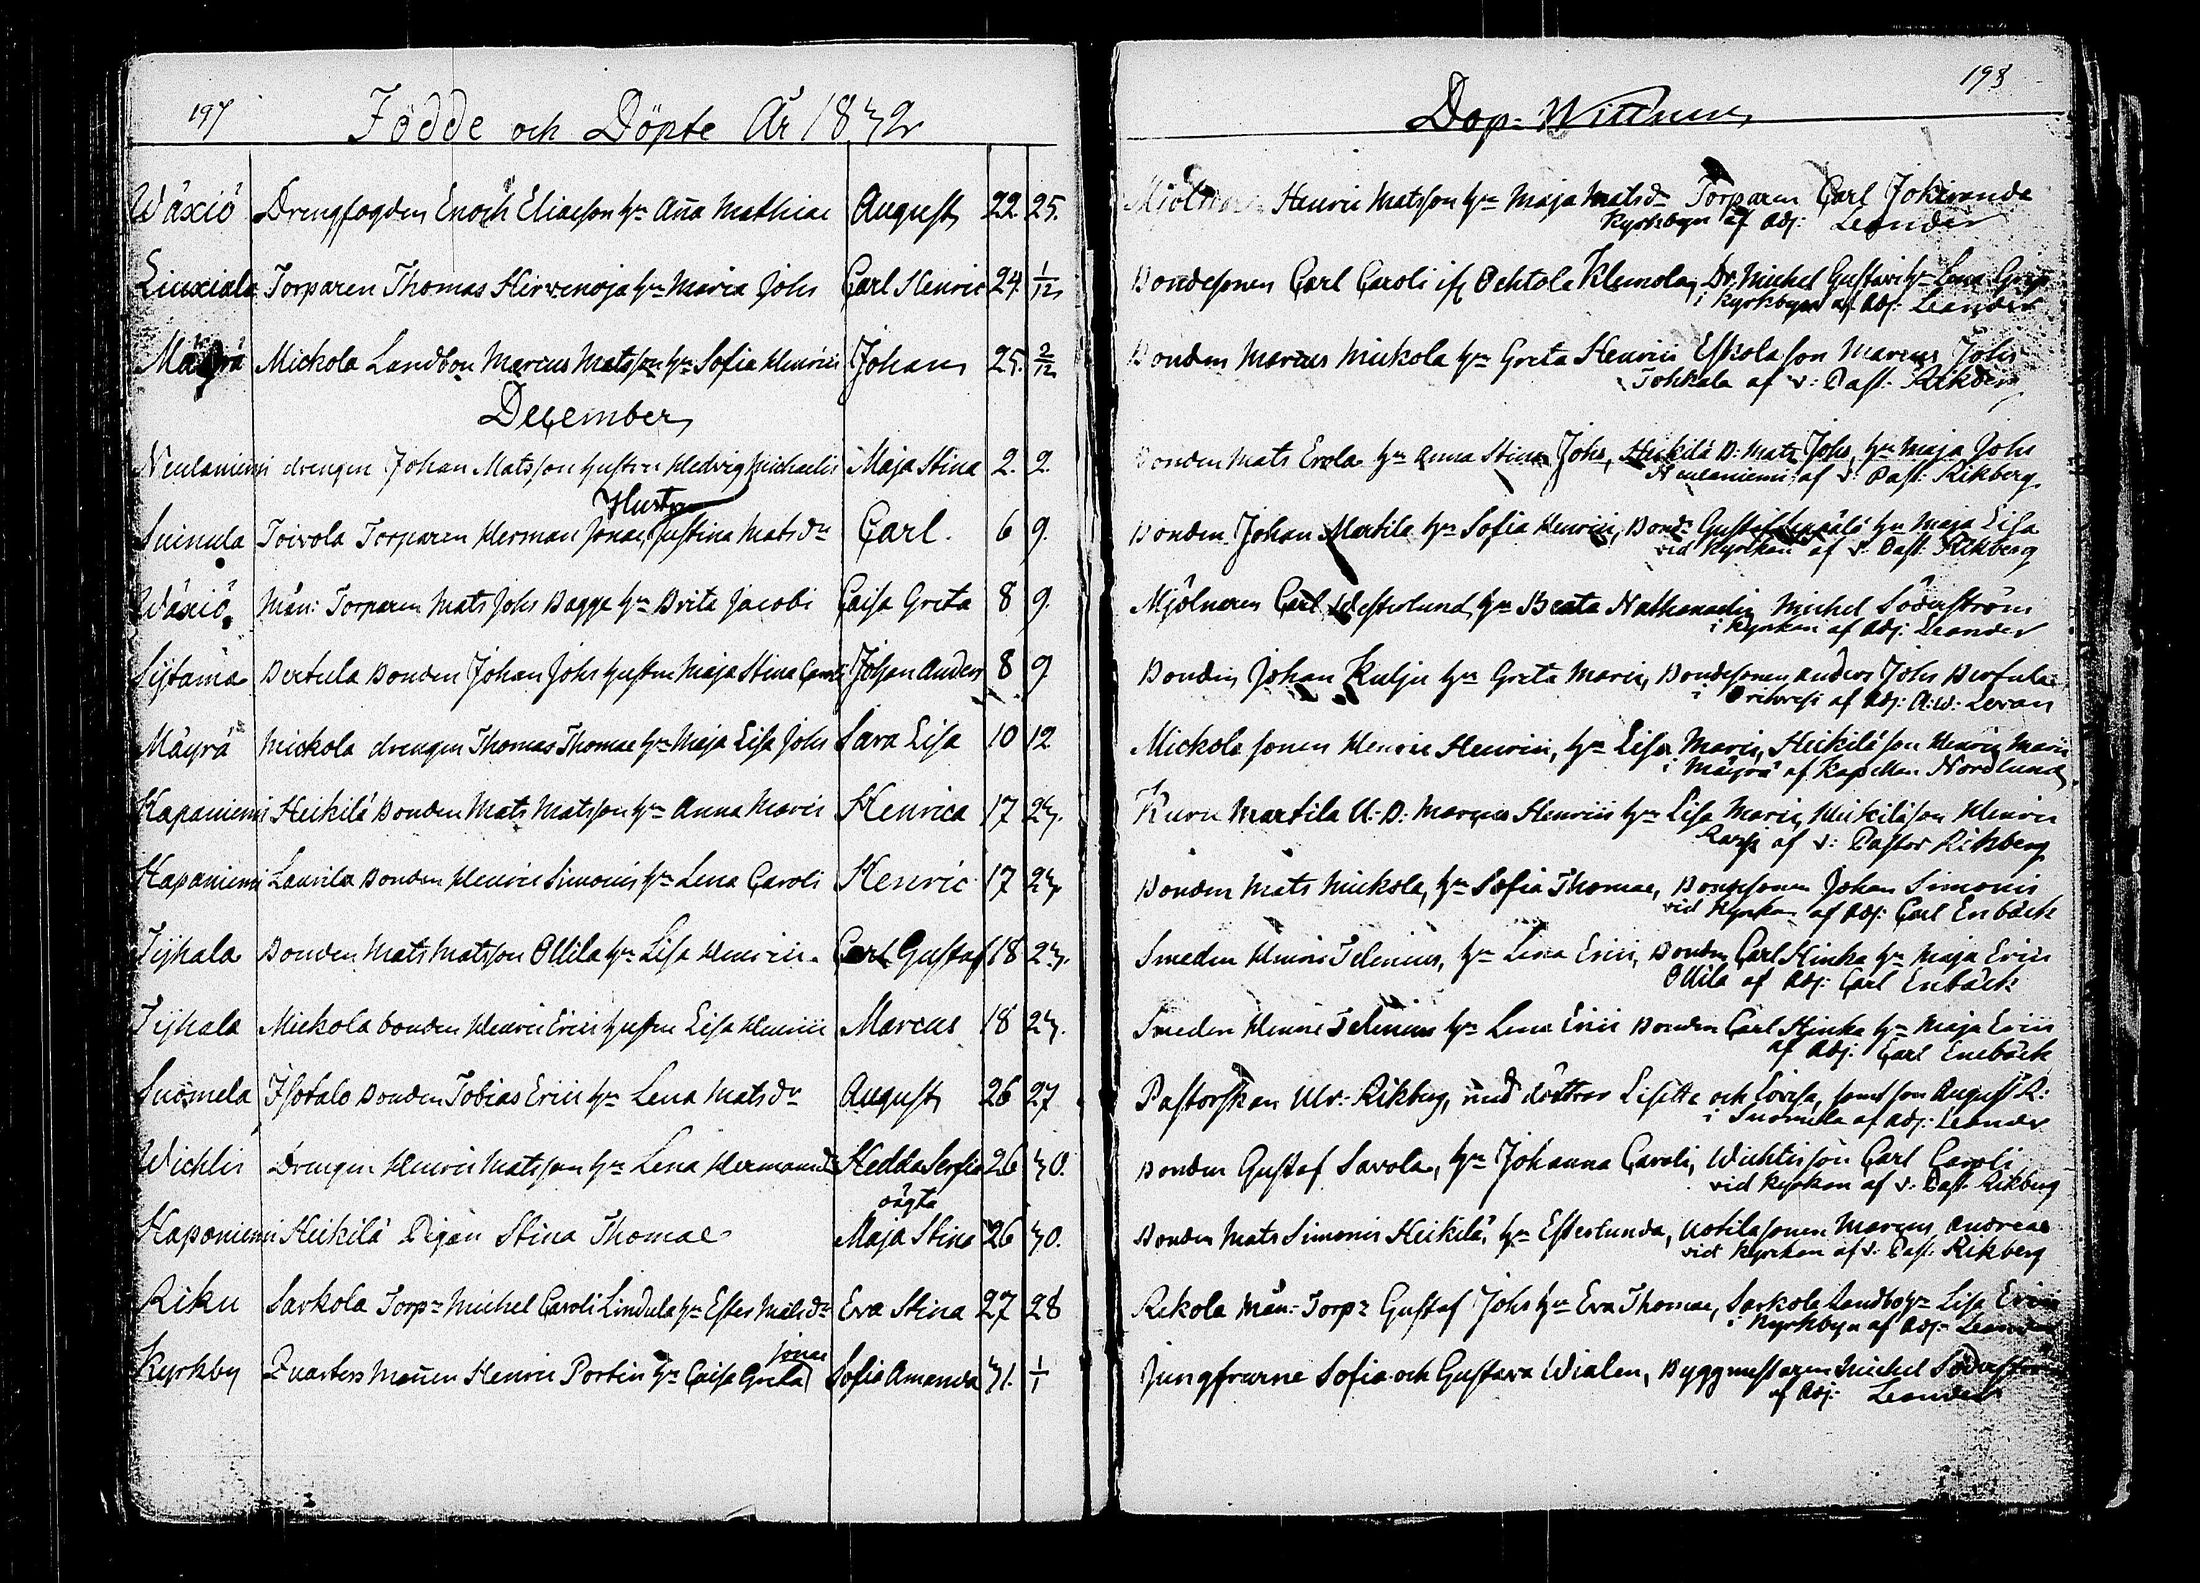 197
Födde och Döpte År 1832
Wäxiö Drengfogden Enoch Eliaeson hn Aña Mathiae August 22 25.
Liuxiala Torparen Thomas Hirvenoja hn Maria Johs Carl Henric 24. 1/12
Mäyrä Mickola Landbon Marcus Matsson hn Sofia Henrici Johan 25. 2/12
December
Neulaniemi drengen Johan Matsson hustrun Hedvig Michaelis Maja Stina 2. 2.
Hustru
Suinula Toivola Torparen Herman Jonae, Justina Matsdr Carl. 6 9.
Wäxiö Mån: Torparen Mats Johs Bagge hn Brita Jacobi Caisa Greta 8 9.
Sijtama Bertula Bonden Johan Johs hustrun Maja Stina Caroli Johan Anders 8 9
Mäyrä Mickola drengen Thomas Thomae hn Maja Lisa Johs Sara Lisa 10 12
Hapaniemi Heikilä Bonden Mats Matsson hn Anna Marci Henrica 17 23.
Hapaniemi Laurila Bonden Henric Simonis hn Lena Caroli Henric 17 23.
Tijhala Bonden Mats Matsson Ollila hn Lisa Henrici. Carl Gustaf 18 23.
Tijhala Mickola bonden Henric Erici hustrun Lisa Henrici Marcus 18 23.
Suomela Isotalo Bonden Tobias Erici hn Lena Matsdr August 26 27
Wichlis Drengen Henric Matsson hn Lena Hermansdr Hedda Serafia 26 30.
oägta
Haponiemi Heikilä Pigan Stina Thomae Maja Stina 26 30.
Riku Sarkola Torp: Michel Caroli Lindula hn Ester Matsdr Eva Stina 27 28
Jonae
Kyrkby Quarters Mañen Henric Portin hn Caisa Greta Sofia Amanda 31. 1/1
198
Dop-Wittnen
Mjölnaren Henric Matsson hn Maja Matsdr Torparen Carl Jokiranda
Kyrkbyn af Adj: Leander
Bondesonen Carl Caroli ifr Ochtola Klemola, Dr. Michel Gustavi hn Lena Greta
i Kyrkbyn af Adj: Leander
Bonden Marcus Mickola hn Greta Henrici Eskola son Marcus Johs
Tohkala af v: Past: Rikberg
Bonden Mats Erola hn Anna Stina Johs, Heikilä B: Mats Johs, hn Maja Johs
Neulaniemi af v: Past: Rikberg
Bonden Johan Martila hn Sofia Henrici, Bond: Gustaf hn Maja Lisa
vid Kyrkan af v: Past: Rikberg
Mjölnaren Carl Westerlund, hn Beata Nathanaelis Michel Söderström
i Kyrkan af Adj: Leander
Bonden Johan Kulju hn Greta Maria, Bondesonen Anders Johs Bertula
i Orihvesi af Adj: A:W: Levan
Mickola sonen Henric Henrici, hn Lisa Marci, Heikilä son Henric Marci
i Mäyrä af Kapellan Nordlund
Kuru Martila U: B: Marcus Henrici hn Lisa Marci, Heikilä son Henric
af v: Pastor Rikberg
Bonden Mats Mickola, hn Sofia Thomae, Bondesonen Johan Simonis
vid Kyrkan af Adj: Carl Enbäck
Smeden Henric Telenius, hn Lena Erici, Bonden Carl Hinka hn Maja Erici
Ollila af Adj: Carl Enbäck
Smeden Henric Telenius hn Lena Erici Bonden Carl Hinka hn Maja Erici
af Adj: Carl Enebäck
Pastorskan Ulr: Rikberg, med döttrar Lisette och Lovisa, samt son August R:
i Suomela af Adj: Leander
Bonden Gustaf Savola, hn Johanna Caroli, Wichlis son Carl Caroli
vid Kyrkan af v: Past: Rikberg
Bonden Mats Simonis Heikilä, hn Ester lunda, Uotila sonen Marcus Andreae
vid Kyrkan af v: Past: Rikberg
Rekola Mån: Torp: Gustaf Johs hn Eva Thomae, Sarkola Landbo hn Lisa Erici
i Kyrkbyn af Adj: Leander
Jungfrurne Sofia och Gustava Wialen, Byggmästaren Michel Söderström
af Adj: Leander